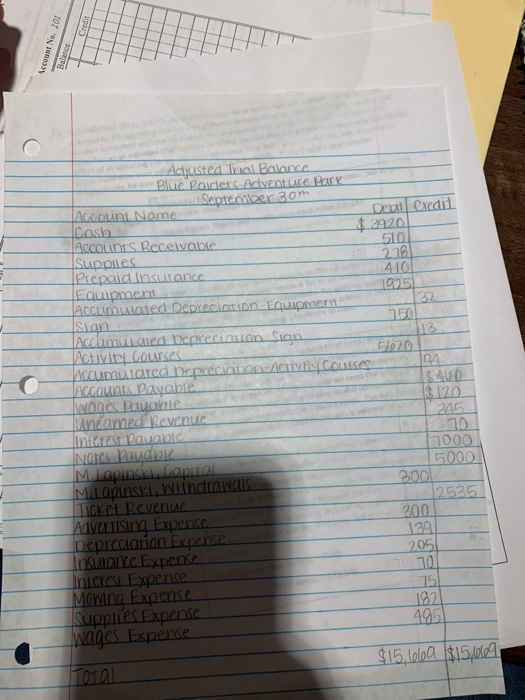 Account No. 101
Balance
Credit
Adjusted Trial Balance
Blue Raiders Adventure Park
September 30th
Account Name Debit Credit
Cash $ 3920
Accounts Receivable 510
Supplies 278
Prepaid Insurance 410
Equipment 1925
Accumulated Depreciation-Equipment 32
Sign 750
Accumulated Depreciation-Sign 13
Activity Courses 5670
Accumulated Depreciation-Activity Courses 94
Accounts Payable
Wages Payable $120
Unearned Revenue 345
Interest Payable 70
Notes Payable 7000
M. Lapinski, Capital 5000
M. Lapinski, Withdrawals 800
Ticket Revenue 2535
Advertising Expense 300
Depreciation Expense 139
Insurance Expense 205
Interest Expense 70
Mowing Expense 75
Supplies Expense 182
Wages Expense 485
Total $15,669 $15,669